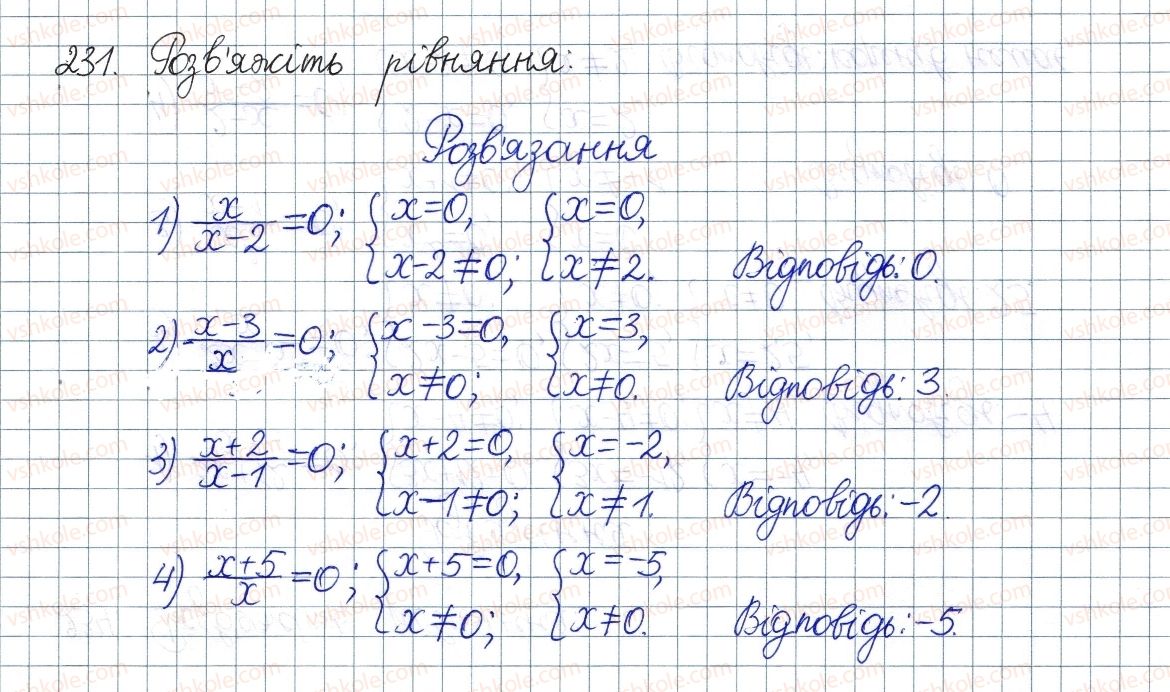 231. Розв'яжіть рівняння:
Розв'язання
1) x/(x-2) =0; {x=0, x-2≠0; {x=0, x≠2. Відповідь: 0.
2) (x-3)/x =0; {x-3=0, x≠0; {x=3, x≠0. Відповідь: 3.
3) (x+2)/(x-1) =0; {x+2=0, x-1≠0; {x=-2, x≠1. Відповідь: -2.
4) (x+5)/x =0; {x+5=0, x≠0; {x=-5, x≠0. Відповідь: -5.
vshkole.com